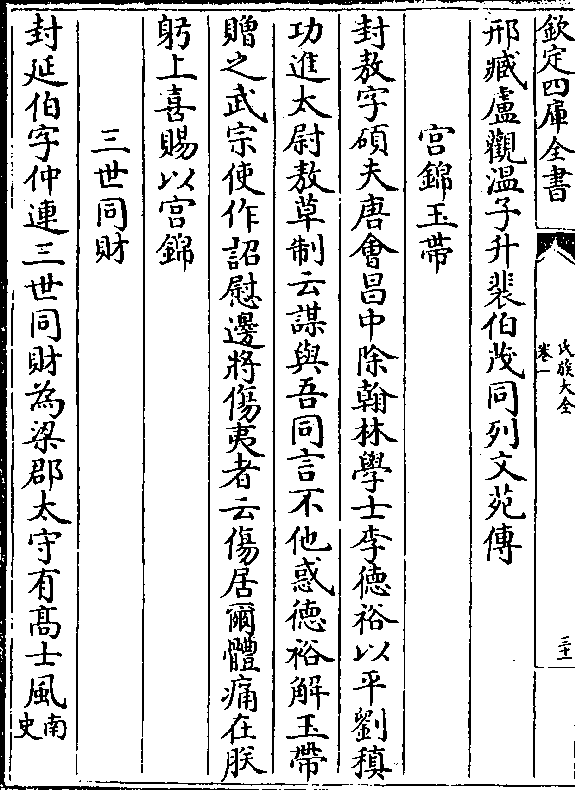 欽定四庫全書
氏族大全
卷一
三十一
邢臧盧觀溫子升裴伯茂同列文苑傳
宮錦玉帶
封敖字碩夫唐會昌中除翰林學士李德裕以平劉稹
功進太尉敖草制云謀與吾同言不他惑德裕解玉帶
贈之武宗使作詔慰邊將傷夷者云傷居爾體痛在朕
躬上喜賜以宮錦
三世同財
封延伯字仲連三世同財為梁郡太守有髙士風南史